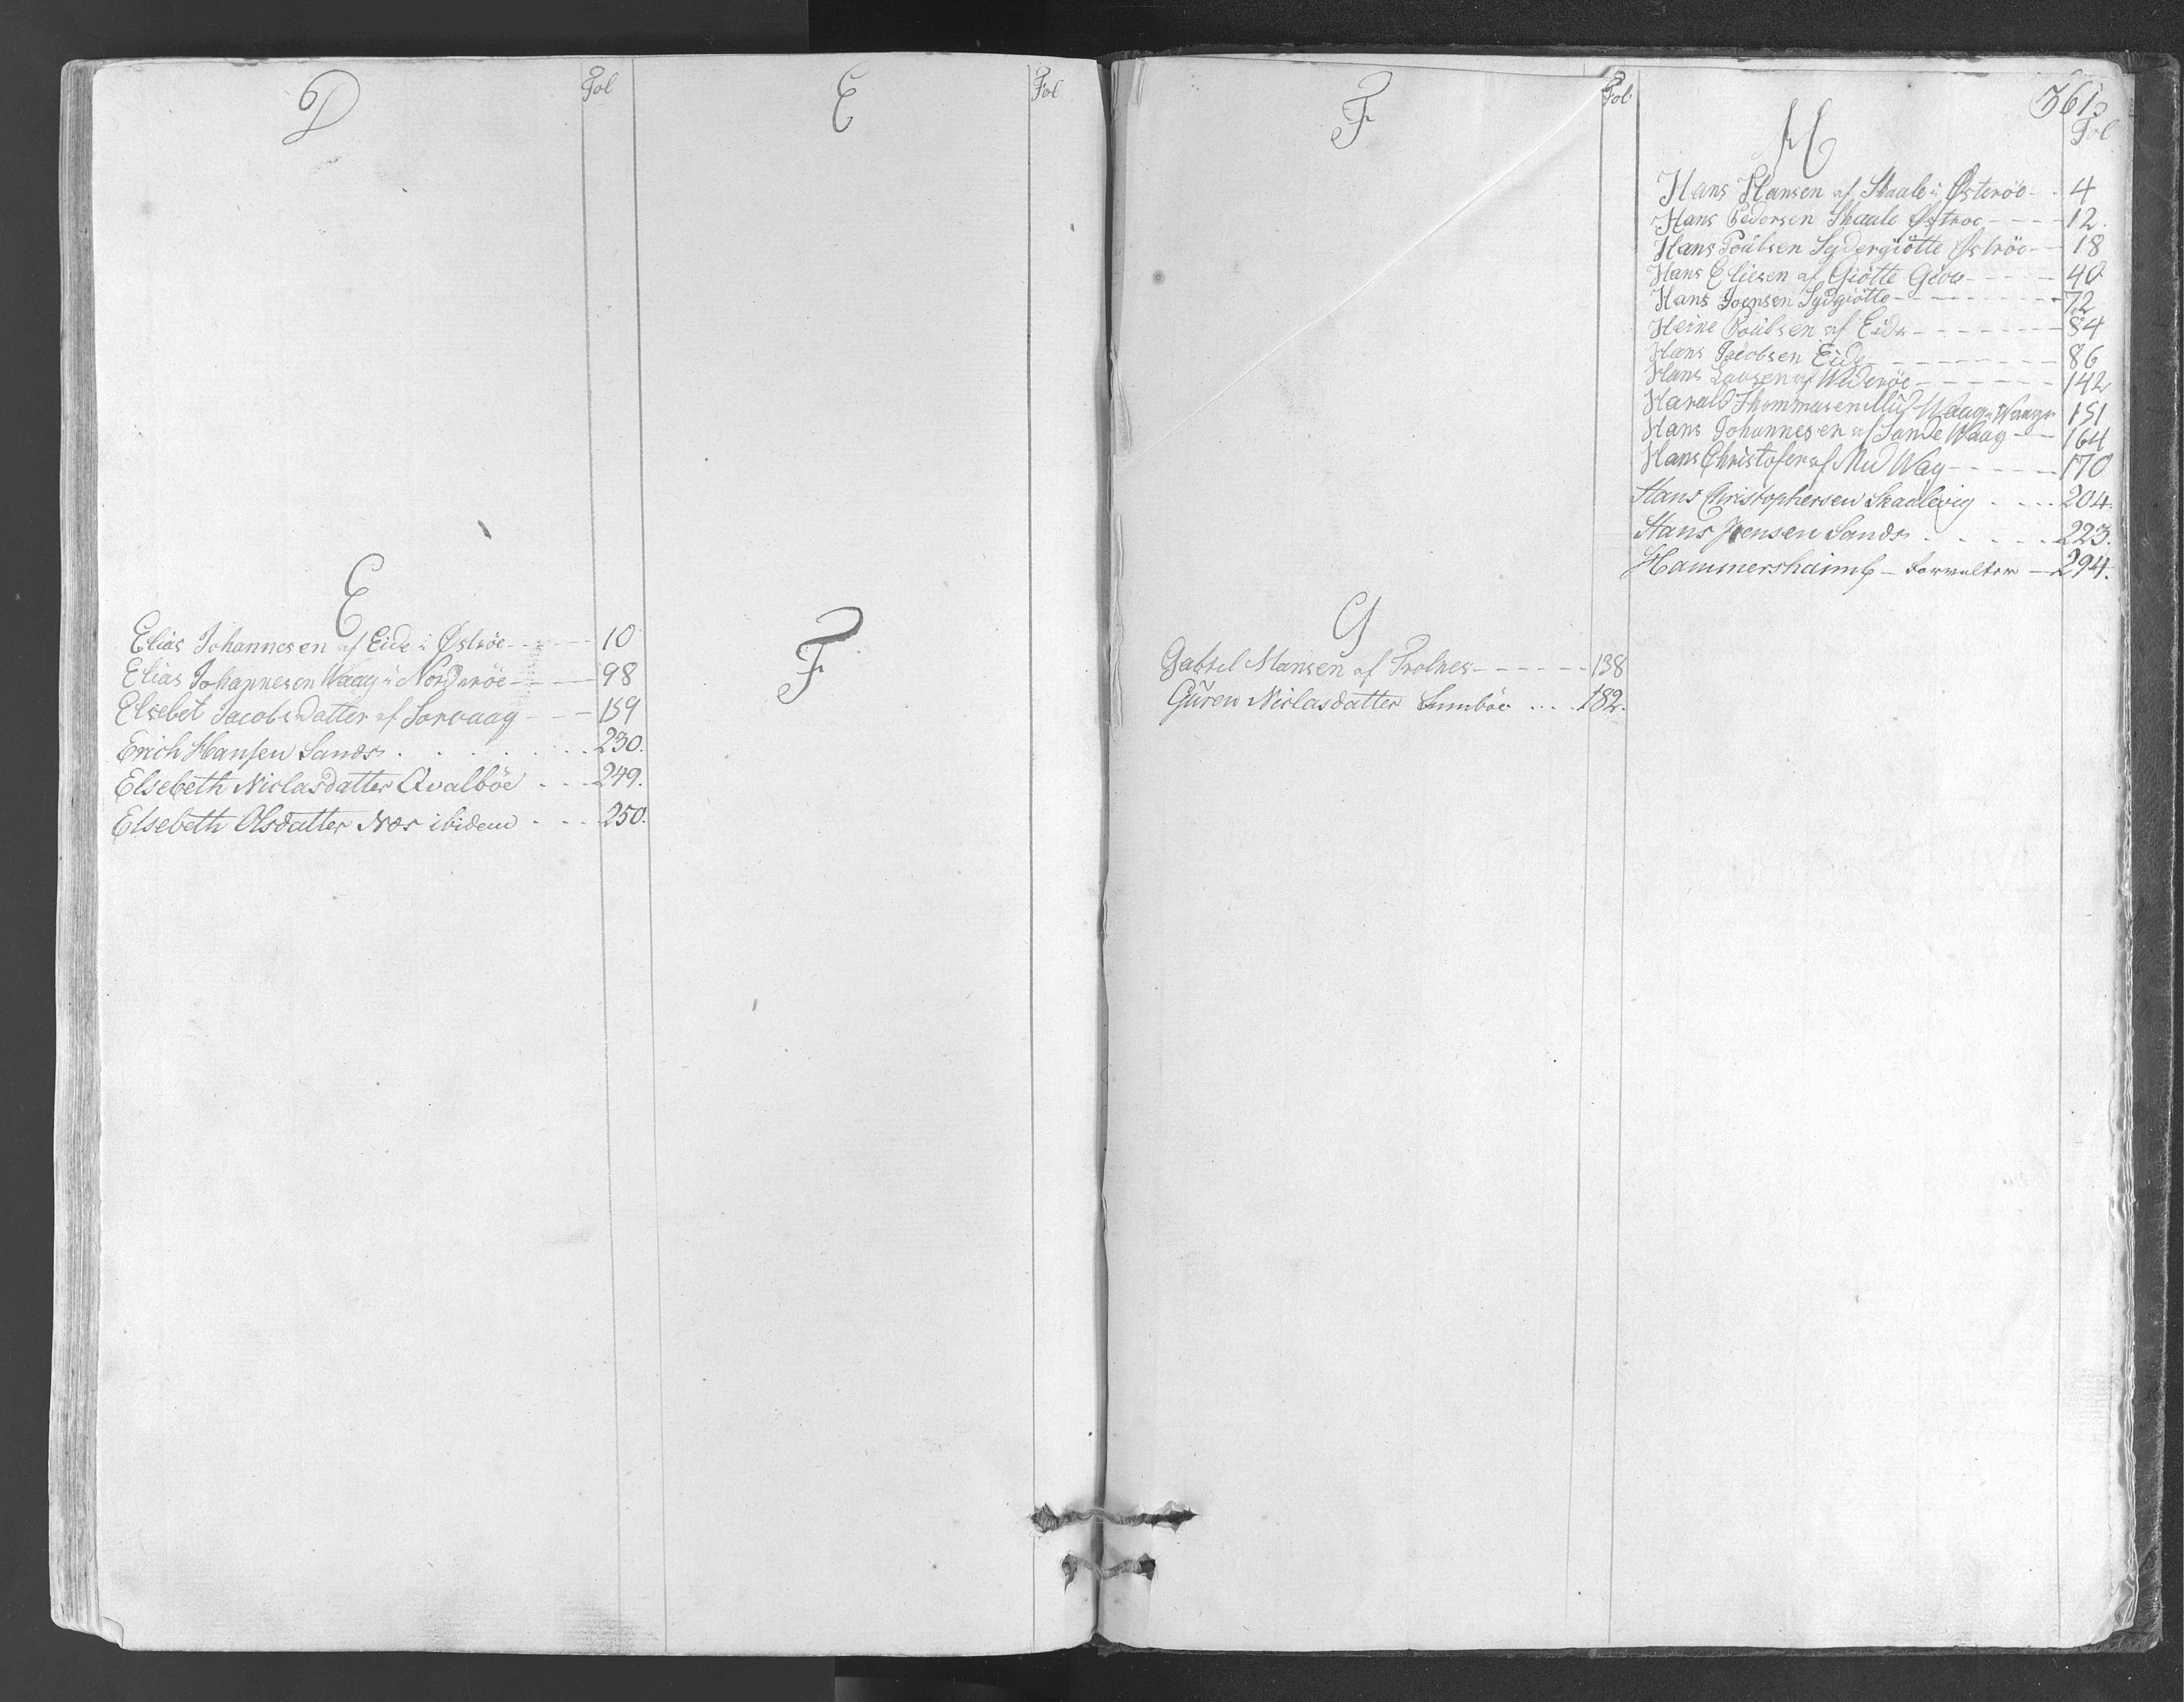 D
Fol
E
Elias Johannesen af Eide i Øströe - - - 10
Elias Johannesen Waag i Norderöe - - - 98
Elsebet Jacobsdatter af Sorvaag - - - 159
Erich Hansen Sands . . . . . . . 230.
Elsebeth Niclasdatter Qvalböe . . . 249.
Elsebeth Olsdatter Næs ibidem . . . 250.
E
Fol
F
F
Fol
G
Gabriel Mansen af Trolnes - - - - - - 138
Guren Niclasdatter Sumböe . . . . 182.
361
H
Fol
Hans Hansen af Skaale i Østeröe - - 4
Hans Pedersen Skaale Østroe - - - - 12.
Hans Poulsen Sydergiötte Øströe - - 18
Hans Eliesen af Giötte Giov - - - - - 40
Hans Joensen Sydgiötte - - - - - - - 72
Heine Poulsen af Eide - - - - - - - 84
Hans Jacobsen Eide - - - - - - - - - 86
Hans af Wideröe - - - - - - 142
Harald Thommasen Mid Waag i Waagø 151
Hans Johannesen af Sande Waag - - - 164
Hans Christofer af Mid Wag - - - - - 170
Hans Christophersen Skaalevig . . . . 204.
Hans Jensen Sands . . . . . . 223.
Hammershaimb - Forvalter - 294.